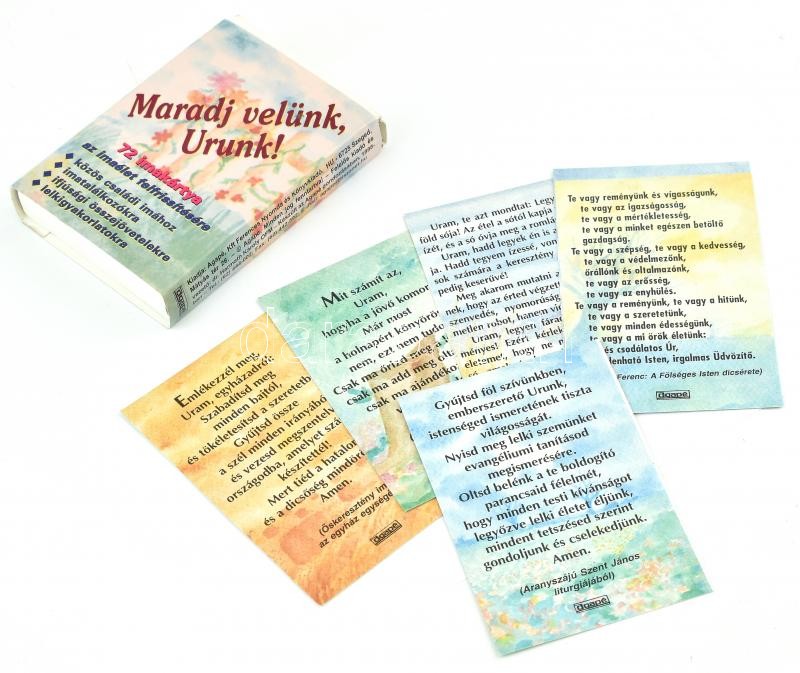 Maradj velünk,
Urunk!
72 imakártya
az imaélet felfrissítésére
közös családi imához
imatalálkozókra
ifjúsági összejövetelekre
lelkigyakorlatokra
Kiadja: Agapé, Kft Ferences Nyomda és Könyvkiadó, HU - 6725 Szeged,
Mátyás tér 26.
agapé
Emlékezzél meg,
Uram, egyházadról:
Szabadítsd meg
minden bajtól,
és tökéletesítsd a szeretetb
Gyűjtsd össze
a szél minden irányából
és vezesd megszentelv
országodba, amelyet szá
készítettél!
Mert tiéd a hatalom
és a dicsőség mindörö
Amen.
(Őskeresztény im
az egyház egységé
agapé
Mit számít az,
Uram,
hogyha a jövő komor
Már most
a holnapért könyörö
nem, ezt nem tudo
Csak ma őrizd meg a
Csak ma add meg
csak ma ajándéko
Uram, te azt mondtat: Legy
föld sója! Az étel a sótól kapja
ízét, és a só óvja meg a romlá
Uram, hadd legyek én is a
ja. Hadd tegyem ízessé, von
sok számára a keresztény
pedig keserűvé!
Meg akarom mutatni a
nek, hogy az érted végzett
szenvedés, nyomorúság
metlen robot, hanem vi
Uram, legyen fárad
ményes! Ezért kérlek
életemet, hogy ne
Te vagy reményünk és vigasságunk,
te vagy az igazságosság,
te vagy a mértékletesség,
te vagy a minket egészen betöltő
gazdagság.
Te vagy a szépség, te vagy a kedvesség,
te vagy a védelmezőnk,
őrállónk és oltalmazónk,
te vagy az erősség,
te vagy az enyhülés.
Te vagy a reményünk, te vagy a hitünk,
te vagy a szeretetünk,
te vagy minden édességünk,
te vagy a mi örök életünk:
és csodálatos Úr,
denható Isten, irgalmas Üdvözítő.
Ferenc: A Fölséges Isten dicsérete)
agapé
Gyűjtsd föl szívünkben,
emberszerető Urunk,
istenséged ismeretének tiszta
világosságát.
Nyisd meg lelki szemünket
evangéliumi tanításod
megismerésére.
Oltsd belénk a te boldogító
parancsaid félelmét,
hogy minden testi kívánságot
legyőzve lelki életet éljünk,
mindent tetszésed szerint
gondoljunk és cselekedjünk.
Amen.
(Aranyszájú Szent János
liturgiájából)
agapé